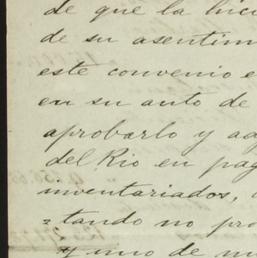 de que la hici
de su asentim
este convenio e
en su auto de
aprobarlo y ag
del Rio en pag
inventariados,
=tando no pro
y uno de mi